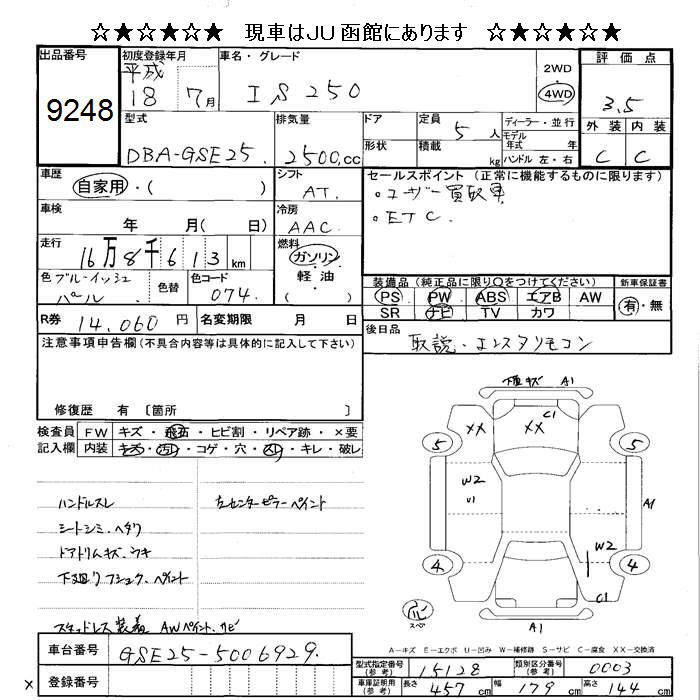 ☆★☆★☆★ 現車はJU函館にあります ☆★☆★☆★
出品番号
9248
初度登録年月
平成
18 7月
車名・グレード
IS 250
2WD
4WD
評価点
3.5
外装 内装
C C
型式
DBA-GSE25
排気量
2500.cc
ドア
形状
定員 5 人
積載 kg
ディーラー・並行
モデル年式 年式
ハンドル 左・右
車歴
自家用・( )
シフト
AT.
セールスポイント (正常に機能するものに限ります)
・ユーザー買取車
・ETC.
車検
年 月( 日)
冷房
AAC
走行
16万8千613km
燃料
ガソリン
軽油
( )
色 ブルーイッシュ
パール
色替
色コード
074.
装備品 (純正品に限り○をつけてください)
PS PW ABS エアB AW
SR ナビ TV カワ
新車保証書
有・無
R券 14,060 円
名変期限 月 日
後日品
取説・エンスタリモコン
注意事項申告欄 (不具合内容等は具体的に記入して下さい)
修復歴 有 〔箇所 〕
検査員
記入欄
FW キズ・飛石・ヒビ割・リペア跡・×要
内装 キズ・汚れ・コゲ・穴・スレ・キレ・破レ
ハンドルスレ
シートシミ、ヘタリ
ドアトリムキズ、ウキ
下廻りフショク、ペイント
スタッドレス装着 AWペイント、サビ
左センターピラーペイント
下廻キズ A1
C1
XX XX
5 5
W2
U1
A1
W2
4 4
C1
A1
スペ
A−キズ E−エクボ U−凹み W−補修跡 S−サビ C−腐食 XX−交換済
車台番号
GSE25-5006929.
登録番号
×
型式指定番号
(参考)
15128
類別区分番号
(参考)
0003
車庫証明用
(参考)
長さ 457 cm
幅 179 cm
高さ 144 cm